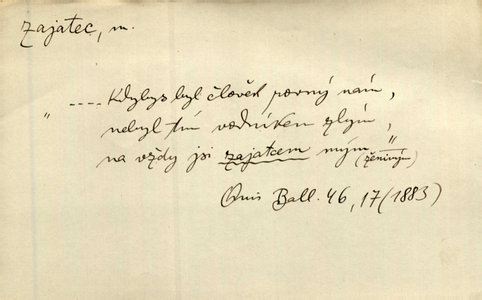 zajatec, m.
„ .... Kdybys byl člověk rovný nám,
nebyl tím vodníkem zlým,
na vždy jsi zajatcem mým" (ženiným)
Ball. 46, 17 (1883)